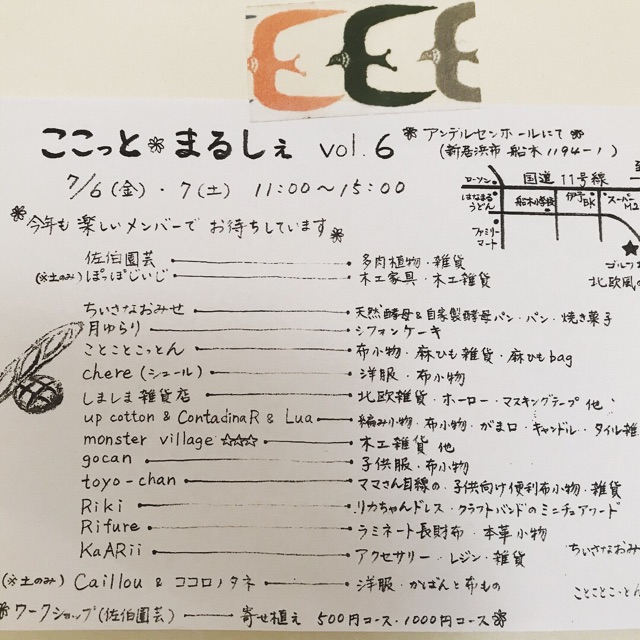 ここっと まるしぇ vol.6 アンデルセンホールにて
(新居浜市 船木 1194-1)
7/6(金)・7(土) 11:00〜15:00
国道11号線
ローソン
はなまるうどん
船木小学校
伊予BK
スーパー
ファミリーマート
ゴルフ
北欧風の
今年も 楽しいメンバーで お待ちしています
佐伯園芸 多肉植物・雑貨
(※土のみ) ぽっぽじぃじ 木工家具・木工雑貨
ちいさなおみせ 天然酵母&自家製酵母パン・パン・焼き菓子
月ゆらり シフォンケーキ
ことことこっとん 布小物・麻ひも雑貨・麻ひもbag
chere (シェール) 洋服・布小物
しましま雑貨店 北欧雑貨・ホーロー・マスキングテープ 他
up cotton & ContadinaR & Lua 編み小物・布小物・がま口・キャンドル・タイル雑
monster village ☆☆☆ 木工雑貨 他
gocan 子供服・布小物
toyo-chan ママさん目線の・子供向け便利布小物・雑貨
Riki リカちゃんドレス・クラフトバンドのミニチュアフード
Rifure ラミネート長財布・本革小物
KaARii アクセサリー・レジン・雑貨
ちいさなおみ
(※土のみ) Caillou & ココロノタネ 洋服・かばんと布もの
ことことこっとん
ワークショップ(佐伯園芸) 寄せ植え 500円コース・1000円コース